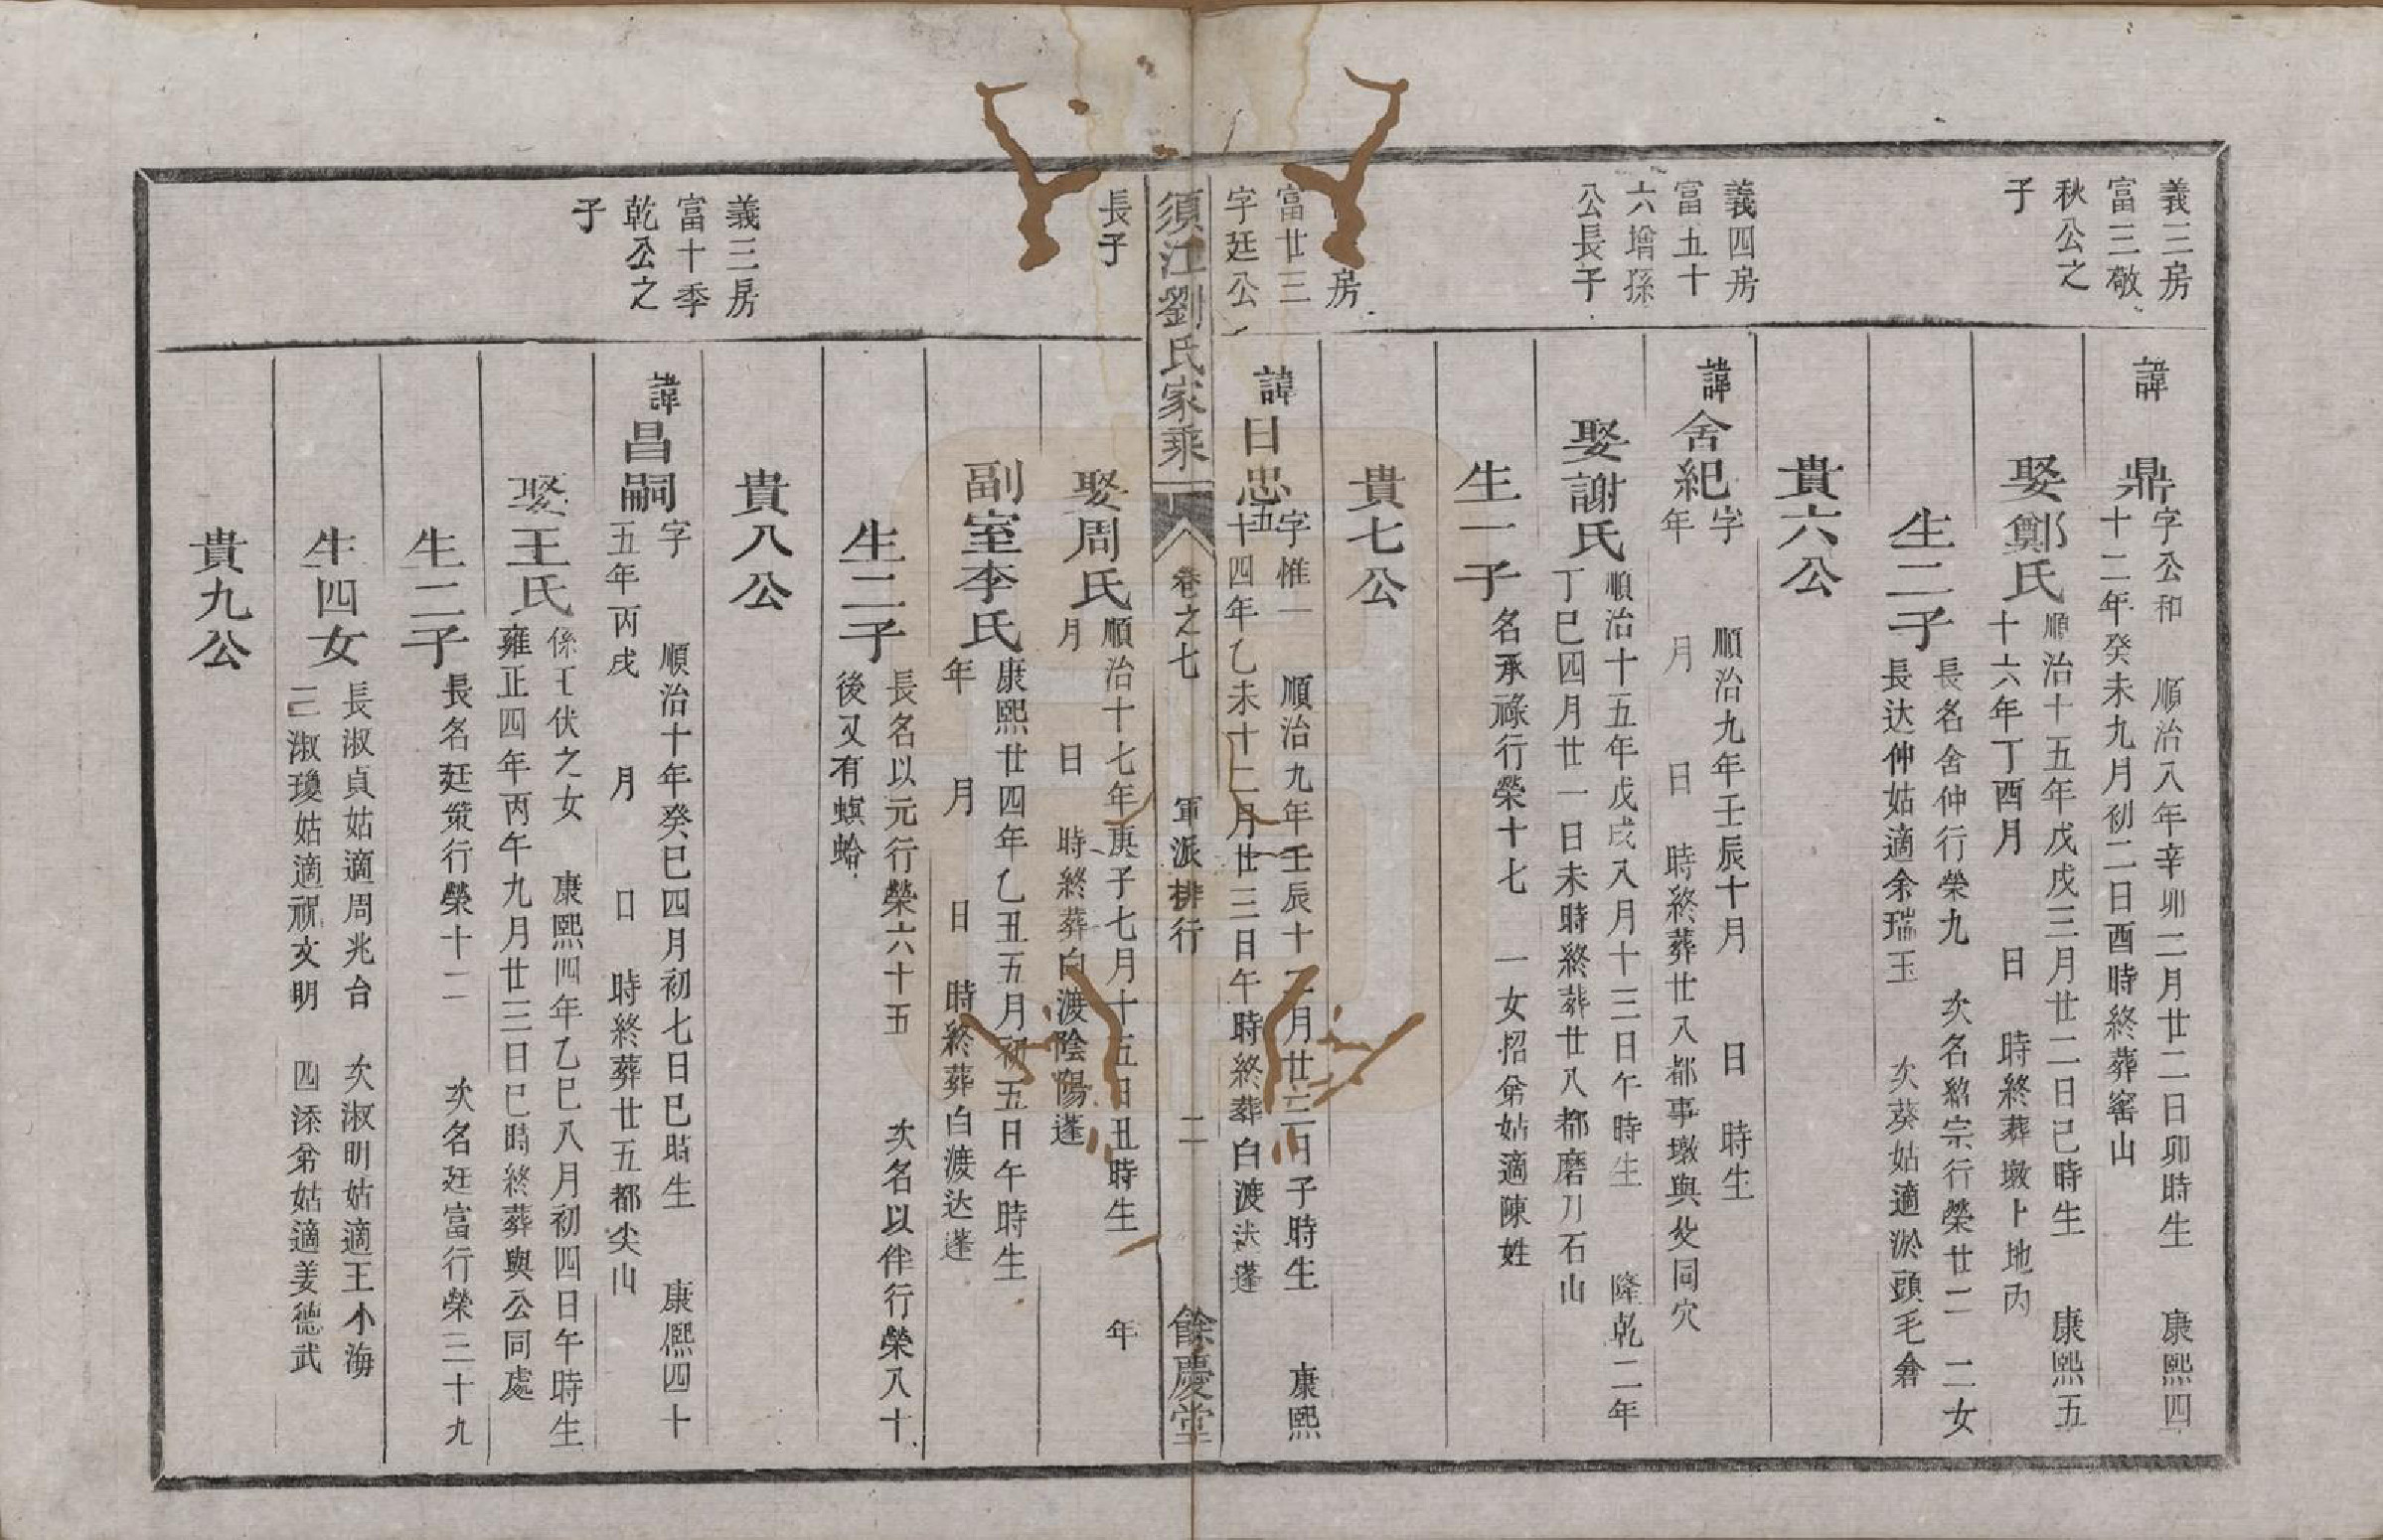 義三房
富三敬
秋公之
子
諱
鼎
字公和　順治八年辛卯二月廿二日卯時生　康熙四
十二年癸未九月初二日酉時終葬窰山
娶鄭氏
順治十五年戊戌三月廿二日巳時生　康熙五
十六年丁酉月　日　時終葬墩卜地內
生二子
長名舍仲行榮九　次名紹宗行榮廿二　二女
長达仲姑適余瑞玉　次葵姑適淤頭毛耷
貴六公
義四房
富五十
六增孫
公長子
諱
舍紀
字　順治九年壬辰十月　日　時生
年　月　日　時終葬廿八都事墩與父同穴
娶謝氏
順治十五年戊戌八月十三日午時生　隆乾二年
丁巳四月廿一日未時終葬廿八都磨刀石山
生一子
名承祿行榮十七　一女招弟姑適陳姓
貴七公
房
富廿三
字廷公
長子
諱
日忠
字惟一　順治九年壬辰十二月廿三日子時生　康熙
五十四年乙未十二月廿三日午時終葬白渡达蓬
須江劉氏家乘
卷之七
軍派排行
二
餘慶堂
娶周氏
順治十七年庚子七月十五日丑時生　年
月　日　時終葬白渡陰陽蓬
副室李氏
康熙廿四年乙丑五月初五日午時生
年　月　日　時終葬白渡达蓬
生二子
長名以元行榮六十五　次名以伴行榮八十
後又有螟蛉
貴八公
義三房
富十季
乾公之
子
諱
昌嗣
字　順治十年癸巳四月初七日巳時生　康熙四十
五年丙戌　月　日　時終葬廿五都尖山
娶王氏
係王伏之女　康熙四年乙巳八月初四日午時生
雍正四年丙午九月廿三日巳時終葬與公同處
生二子
長名廷策行榮十二　次名廷富行榮三十九
生四女
長淑貞姑適周兆台　次淑明姑適王小海
三淑瓊姑適祝文明　四添弟姑適姜德武
貴九公